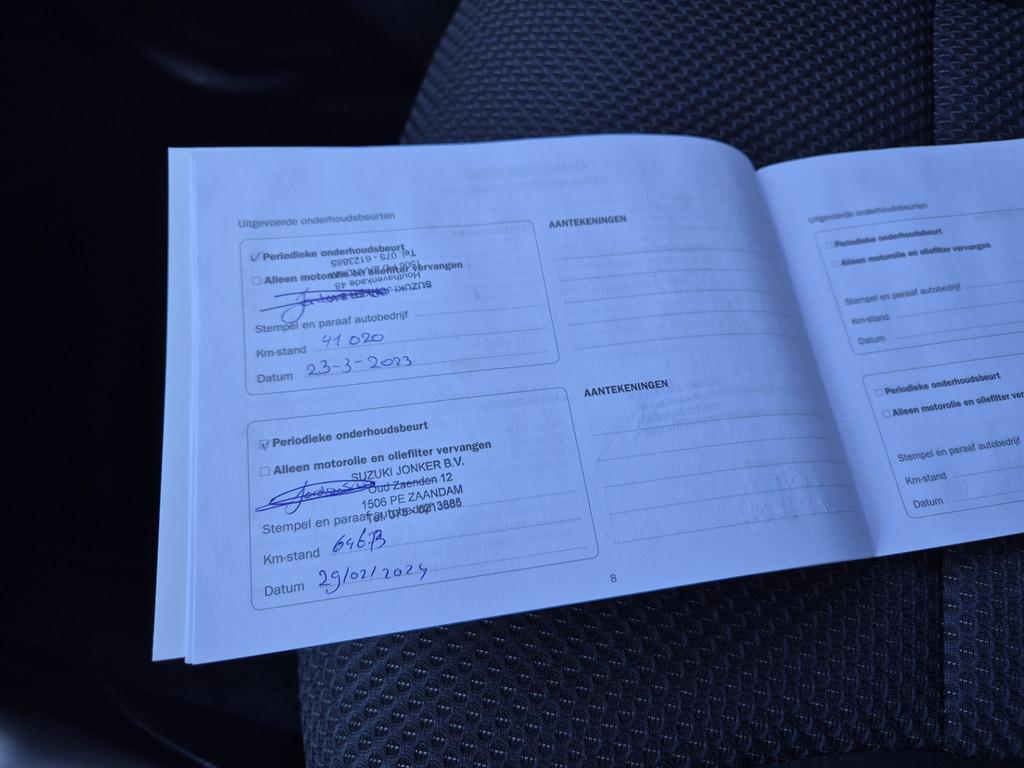 Uitgevoerde onderhoudsbeurten
Periodieke onderhoudsbeurt
Alleen motorolie en oliefilter vervangen
SUZUKI
Houthavenkade 48
1506
Tel. 075 - 6123885
Stempel en paraaf autobedrijf
Km-stand 41 020
Datum 23-3-2023
AANTEKENINGEN
Periodieke onderhoudsbeurt
Alleen motorolie en oliefilter vervangen
SUZUKI JONKER B.V.
Oud Zaenden 12
1506 PE ZAANDAM
Stempel en paraaf autobedrijf
Tel. 075 -
Km-stand 64673
Datum 29/02/2024
AANTEKENINGEN
8
Uitgevoerde onderhoudsbeurten
Periodieke onderhoudsbeurt
Alleen motorolie en oliefilter vervangen
Stempel en paraaf autobedrijf
Km-stand
Datum
Periodieke onderhoudsbeurt
Alleen motorolie en oliefilter ver
Stempel en paraaf autobedrijf
Km-stand
Datum